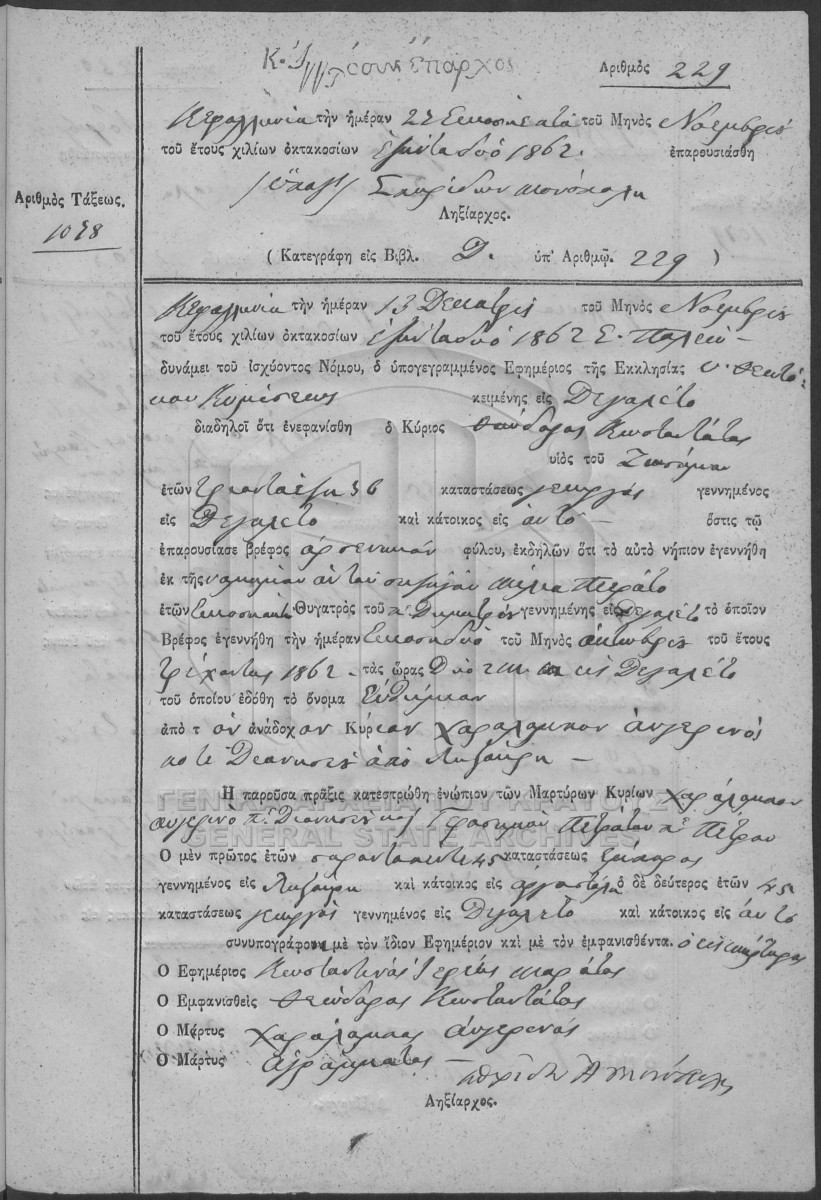 Ἀριθμὸς 229
Κεφαλληνία τὴν ἡμέραν 22 τοῦ Μηνὸς Νοεμβρίου
τοῦ ἔτους χιλίων ὀκτακοσίων ἑξῆντα δυό 1862. ἐπαρουσιάσθη
Σπυρίδων
Ληξίαρχος.
Ἀριθμὸς Τάξεως.
( Κατεγράφη εἰς Βιβλ. Δ. ὑπ' Ἀριθμῷ. 229 )
Κεφαλληνία τὴν ἡμέραν 13 Δεκατρίς τοῦ Μηνὸς Νοεμβρίου
τοῦ ἔτους χιλίων ὀκτακοσίων ἑξῆντα δυό 1862
δυνάμει τοῦ ἰσχύοντος Νόμου, ὁ ὑπογεγραμμένος Ἐφημέριος τῆς Ἐκκλησίας
κειμένης εἰς Δεγαλέτο
διαδηλοῖ ὅτι ἐνεφανίσθη ὁ Κύριος Θεόδορος Κωσταντάτος
υἱὸς τοῦ
ἐτῶν τριανταέξη 36 καταστάσεως γεωργός γεννημένος
εἰς Δεγαλέτο καὶ κάτοικος εἰς αὐτό ὅστις τῷ
ἐπαρουσίασε βρέφος ἀρσενικόν φύλου, ἐκδηλῶν ὅτι τὸ αὐτὸ νήπιον ἐγεννήθη
ἐκ τῆς νομημου αὐτοῦ σηζήγου Πετράτο
ἐτῶν Θυγατρὸς τοῦ γεννημένης εἰς Δεγαλέτο τὸ ὁποῖον
Βρέφος ἐγεννήθη τὴν ἡμέραν Εικοσηδυό τοῦ Μηνὸς ὀκτωβρίς τοῦ ἔτους
τρέχοντος 1862 τὰς ὥρας Δυο 2 εἰς Δεγαλέτο
τοῦ ὁποίου ἐδόθη τὸ ὄνομα Εὐθήμιον
ἀπὸ τὸν ἀνάδοχον Κύριον Χαράλαμπον αὐγερινός
ποτέ Διονησίου ἀπὸ Ληξούρη
Ἡ παροῦσα πρᾶξις κατεστρώθη ἐνώπιον τῶν Μαρτύρων Κυρίων Χαράλαμπον
αυγερινό π. Διονησίου καὶ Γεράσημον Πετράτον π. Πέτρου
Ὁ μὲν πρῶτος ἐτῶν σαρανταπεντε 45 καταστάσεως ἔμπορος
γεννημένος εἰς Ληξούρη καὶ κάτοικος εἰς ἀργοστόλη ὁ δὲ δεύτερος ἐτῶν 45
καταστάσεως γεωργός γεννημένος εἰς Δεγαλέτο καὶ κάτοικος εἰς αὐτό
συνυπογράφουν μὲ τὸν ἴδιον Ἐφημέριον καὶ μὲ τὸν ἐμφανισθέντα.
Ὁ Ἐφημέριος Κωσταντινός Ιερεύς
Ὁ Ἐμφανισθεὶς Θεόδορος Κωσταντάτος
Ὁ Μάρτυς Χαράλαμπος αὐγερινός
Ὁ Μάρτυς ἀγράμματος
Ληξίαρχος.
ΓΕΝΙΚΑ ΑΡΧΕΙΑ ΤΟΥ ΚΡΑΤΟΥΣ
GENERAL STATE ARCHIVES